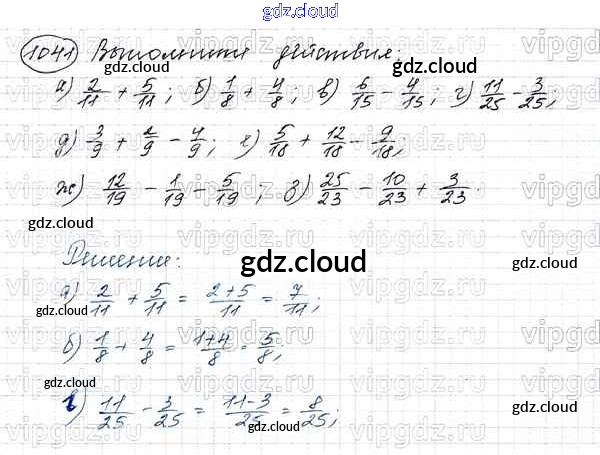 gdz.cloud
1041 Выполните действия:
gdz.cloud
а) 2/11 + 5/11; б) 1/8 + 4/8; в) 6/15 − 4/15; г) 11/25 − 3/25;
д) 3/9 + 2/9 − 4/9; е) 5/18 + 12/18 − 9/18;
ж) 12/19 − 1/19 − 5/19; з) 25/23 − 10/23 + 3/23.
gdz.cloud gdz.cloud
Решение:
gdz.cloud
а) 2/11 + 5/11 = 2+5/11 = 7/11;
gdz.cloud gdz.cloud
б) 1/8 + 4/8 = 1+4/8 = 5/8;
gdz.cloud
в) 11/25 − 3/25 = 11-3/25 = 8/25;
gdz.cloud gdz.cloud